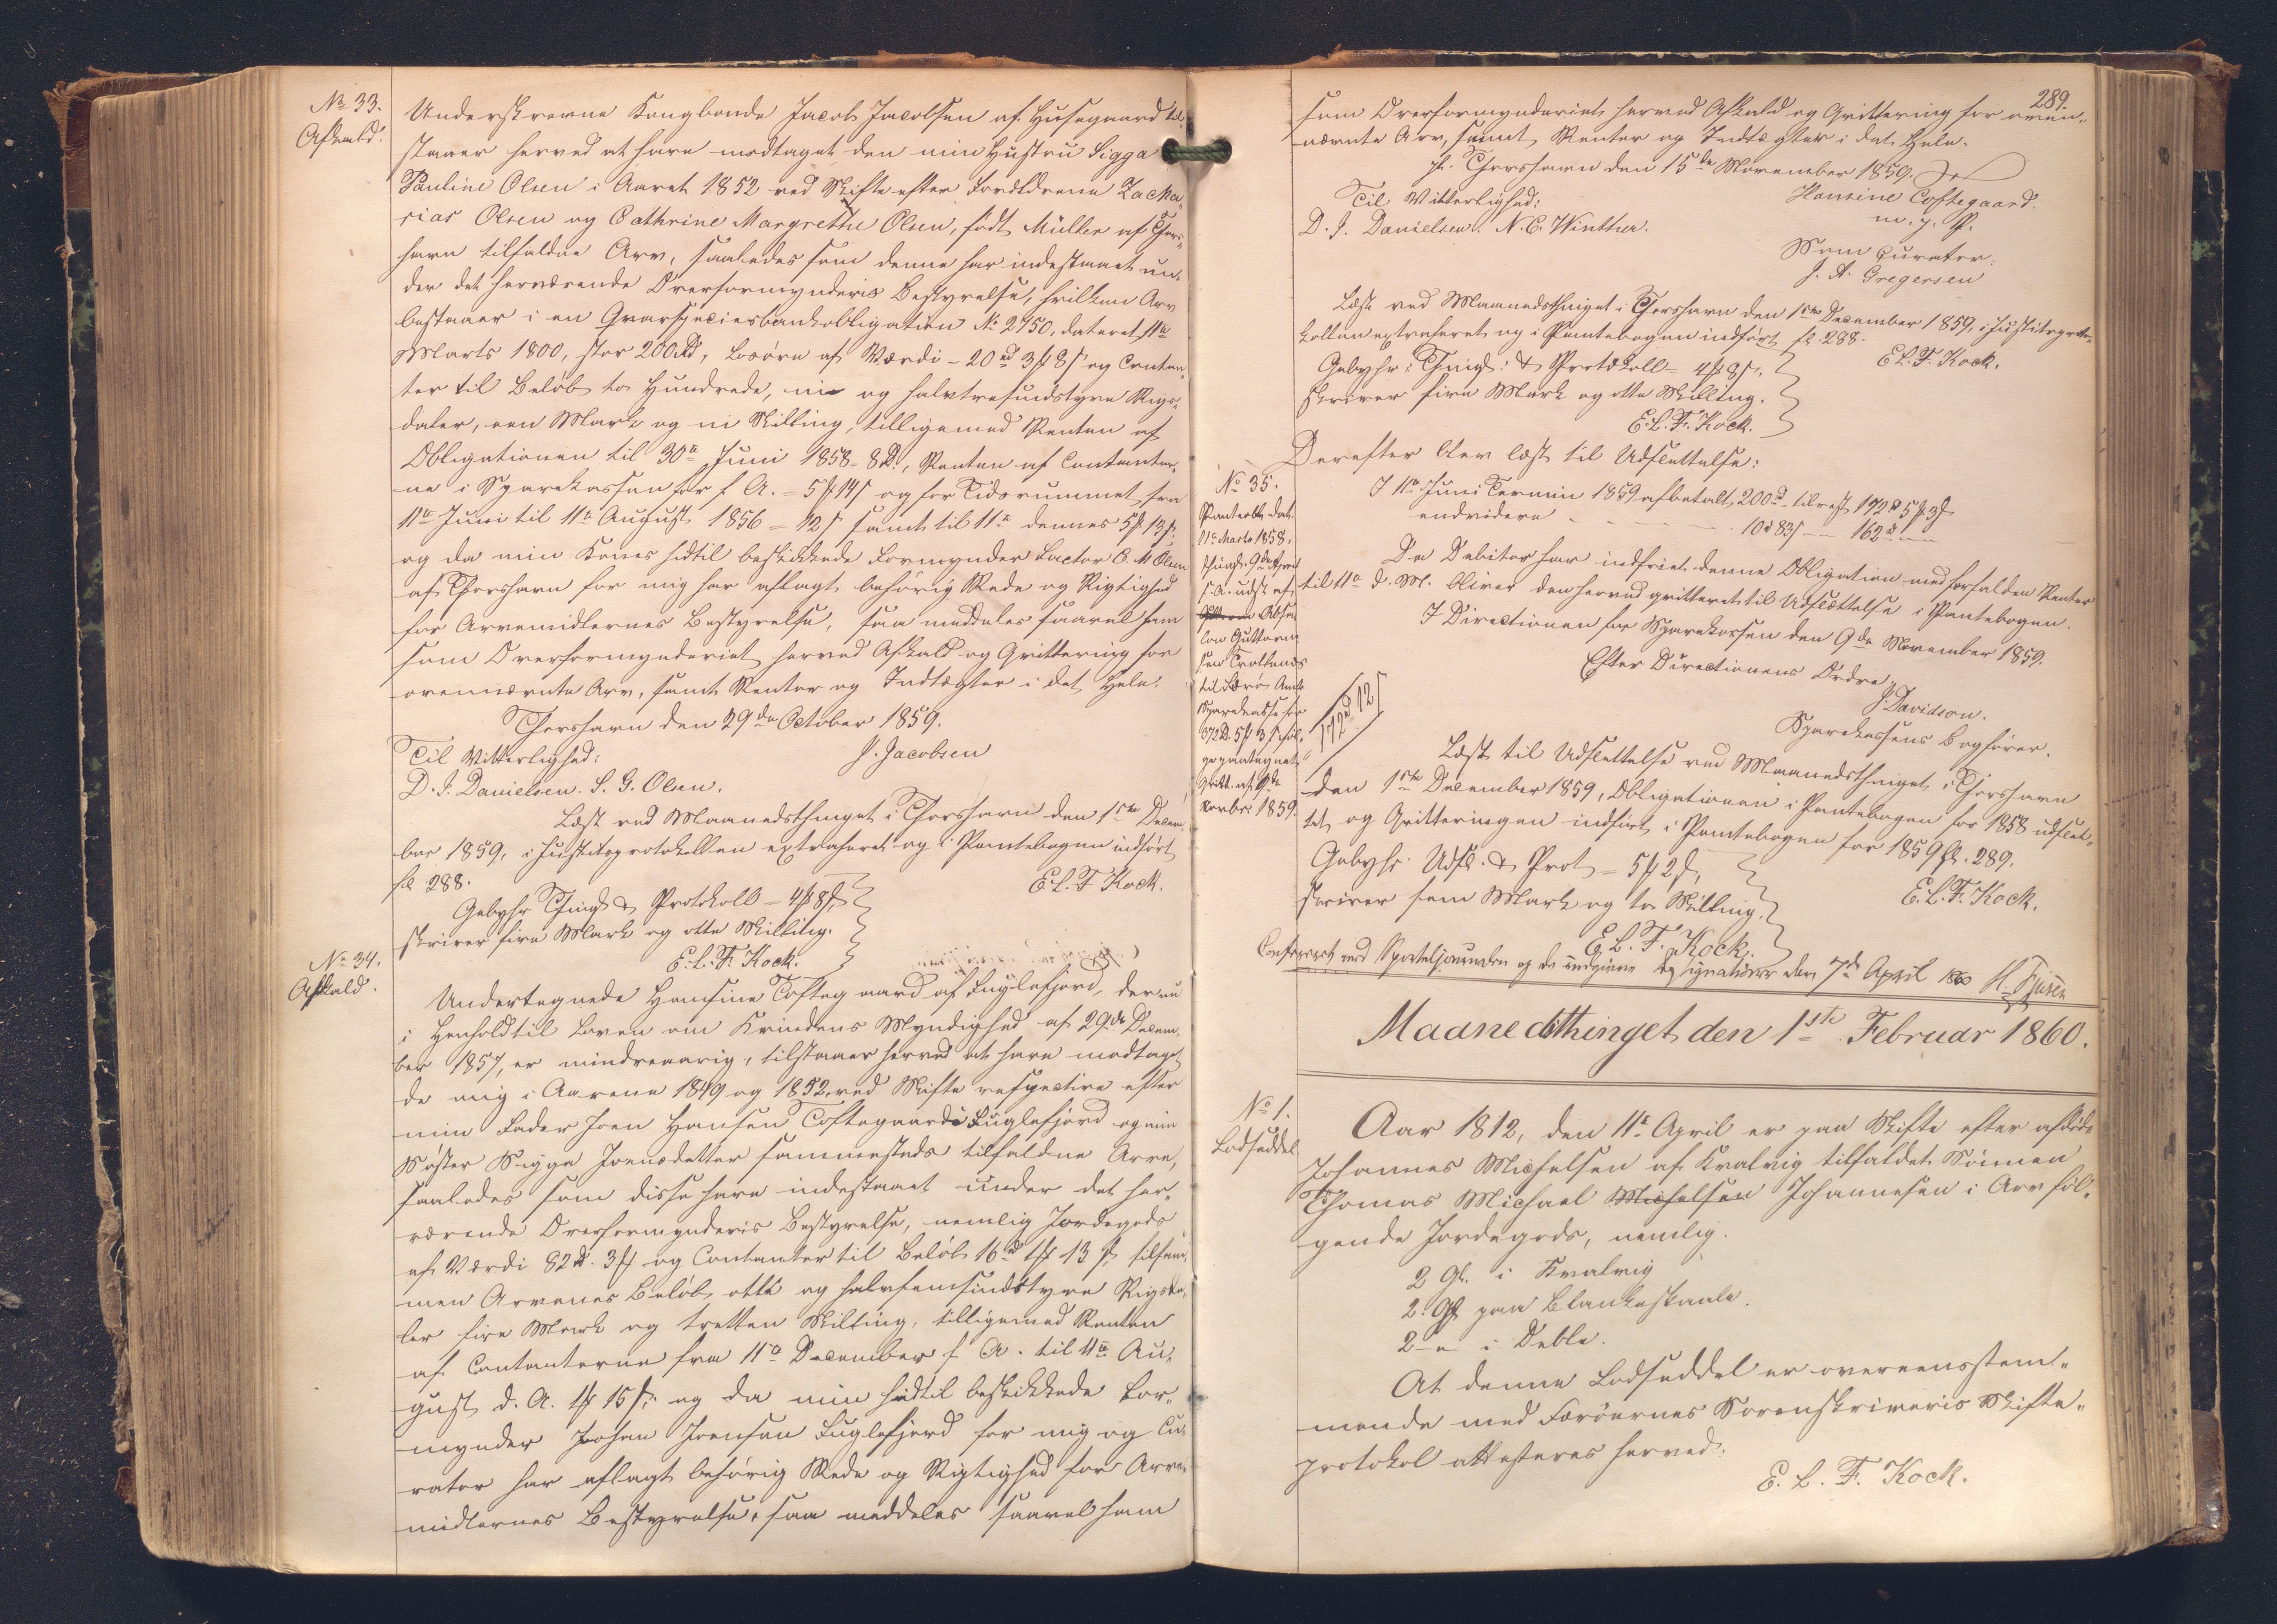 No 33.
Afkald.
Underskrevne Kongbonde Jacob Jacobsen af Husegaard til-
staaer herved at have modtaget den min Hustru Sigga
Pauline Olsen i Aaret 1852 ved Skifte efter Forældrene Zacha-
rias Olsen og Cathrine Margrethe Olsen, født Müller af Thors-
havn tilfaldne Arv, saaledes som denne har indestaaet un-
der det herværende Overformynderis Bestyrelse, hvilken Arv
bestaaer i en Qvarspeciesbankobligation No 2750, dateret 11te
Marts 1800, stor 200 Rd, Løsøre af Værdi - 20 rd 3 ß 8 s og Contan-
ter til Beløb to Hundrede, ni og halvtresindstyve Rigs-
daler, een Mark og ni Skilling, tilligemed Renten af
Obligationen til 30te Juni 1858 - 8 Rd., Renten af Contanter-
ne i Sparekassen for f. A. = 5 ß 14 s og for Tidsrummet fra
11te Juni til 11te August 1856 = 12 s samt til 11te dennes 5 ß 13 s.
og da min Kones hidtil beskikkede Formynder Factor C. M Olsen
af Thorshavn for mig har aflagt behørig Rede og Rigtighed
for Arvemidlernes Bestyrelse, saa meddeles saavel ham
som Overformynderiet herved Afkald og Qvittering for
ovennævnte Arv, samt Renter og Indtægter i det Hele.
Thorshavn den 29de October 1859.
Til Vitterlighed: J. Jacobsen
D. J. Danielsen. S. G. Olsen.
Læst ved Maanedsthinget i Thorshavn den 1ste Decem-
ber 1859, i Justitsprotokollen extraheret og i Pantebogen indført
fol 288. E. L. F Kock.
Gebyhr Thingl & Protokoll = 4 ß 8 s,
skriver fire Mark og otte Skilling.
E. L. F. Kock.
No 34.
Afkald.
Undertegnede Hansine Toftegaard af Fuglefjord, der nu
i Henhold til Loven om Kvindens Myndighed af 29de Decem-
ber 1857, er mindreaarig, tilstaaer herved at have modtaget
de mig i Aarene 1849 og 1852 ved Skifte respective efter
min Fader Joen Hansen Toftegaard i Fuglefjord og min
Søster Sigga Joensdatter sammesteds tilfaldne Arve,
saaledes som disse have indestaaet under det her-
værende Overformynderis Bestyrelse, nemlig Jordegods
af Værdi 82 rd. 3 ß og Contanter til Beløb 16 rd 1 ß 13 s, tilsam-
men Arvenes Beløb otte og halvfemsindstyve Rigsda-
ler fire Mark og tretten Skilling, tilligemed Renten
af Contanterne fra 11te December f. A. til 11te Au-
gust d. A. 1 ß 15 s; og da min hidtil beskikkede For-
mynder Johan Joensen Fuglefjord for mig og Cu-
rator har aflagt behørig Rede og Rigtighed for Arve-
midlernes Bestyrelse, saa meddeles saavel ham
289.
som Overformynderiet herved Afkald og Qvittering for oven-
nævnte Arv, samt Renter og Indtægter i det Hele.
pt. Thorshavn den 15de November 1859.
Til Vitterlighed: Hansine Toftegaard.
D. J. Danielsen. N. C. Winther. m. f. P.
Som Curator:
J. A. Gregersen
Læst ved Maanedsthinget i Thorshavn den 1ste December 1859, i Justitsproto-
kollen extraheret og i Pantebogen indført fol. 288.
E. L. F. Kock.
Gebyhr: Thingl: & Protokoll = 4 ß 8 s,
skriver fire Mark og otte Skilling.
E. L. F. Kock.
Derefter blev læst til Udslettelse:
No 35.
Panteobl. dat.
11te Marts 1858,
thingl. 9de April
s. A. udst. af
Absa-
lon Guttorm-
sen Trollenæs
til Færø Amts
Sparekasse for
372 Rd. 5 ß 3 s, føl-
ge paategnet
Qvitt. af 9de
Novbr. 1859.
I 11te Juni Termin 1859 afbetalt 200 rd. tilrest 172 rd 5 ß 3 s
endvidere 10 rd 83 s - 162 rd
Da Debitor har indfriet denne Obligation med forfalden Renter
til 11te d. M. bliver den herved qvitteret til Udslettelse i Pantebogen.
I Directionen for Sparekassen den 9de November 1859.
Efter Directionens Ordre
J. Davidson.
Sparekassens Bogfører.
172 rd 12 s
Læst til Udslettelse ved Maanedsthinget i Thorshavn
den 1ste December 1859, Obligationen i Pantebogen for 1858 udslet-
tet og Qvitteringen indført i Pantebogen for 1859 fol. 289.
Gebyhr: Udsl. & Prot = 5 ß 2 s,
skriver fem Mark og to Skilling.
E. L. F. Kock.
E. L. F. Kock.
Confereret med Sporteljournalen og de indgivne Designationer den 7de April 1860
Maanedsthinget den 1ste Februar 1860.
No 1.
Lodseddel
Aar 1812, den 11te April er paa Skifte efter afdøde
Johannes Michelsen af Kvalvig tilfaldet Sønnen
Thomas Michael Michelsen Johannesen i Arv føl-
gende Jordegods, nemlig.
2 Gl. i Kvalvig
2. Gl paa Blankeskaale.
2 - " - i Deble.
At denne Lodseddel er overeensstem-
mende med Færøernes Sorenskriveris Skifte-
protokol attesteres herved.
E. L. F. Kock.